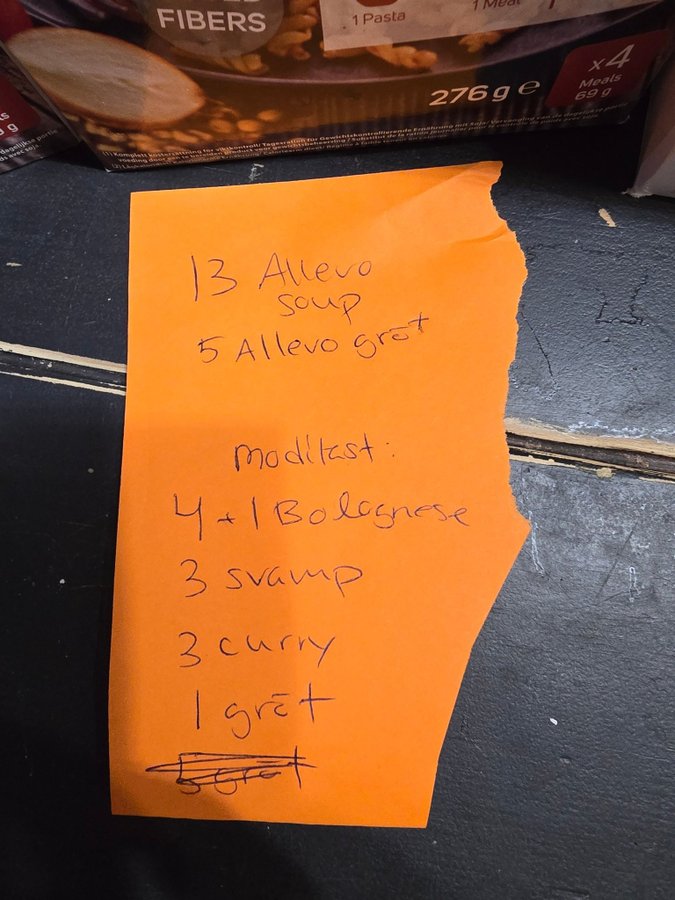 FIBERS
1 Pasta
1 Meal
276 g e
x4
Meals
69 g
13 Allevo
soup
5 Allevo gröt
modifast:
4 + 1 Bolognese
3 svamp
3 curry
1 gröt
5 gröt